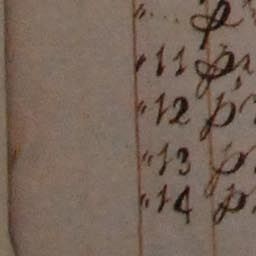 "11 p
"12 p
"13 p
"14 p